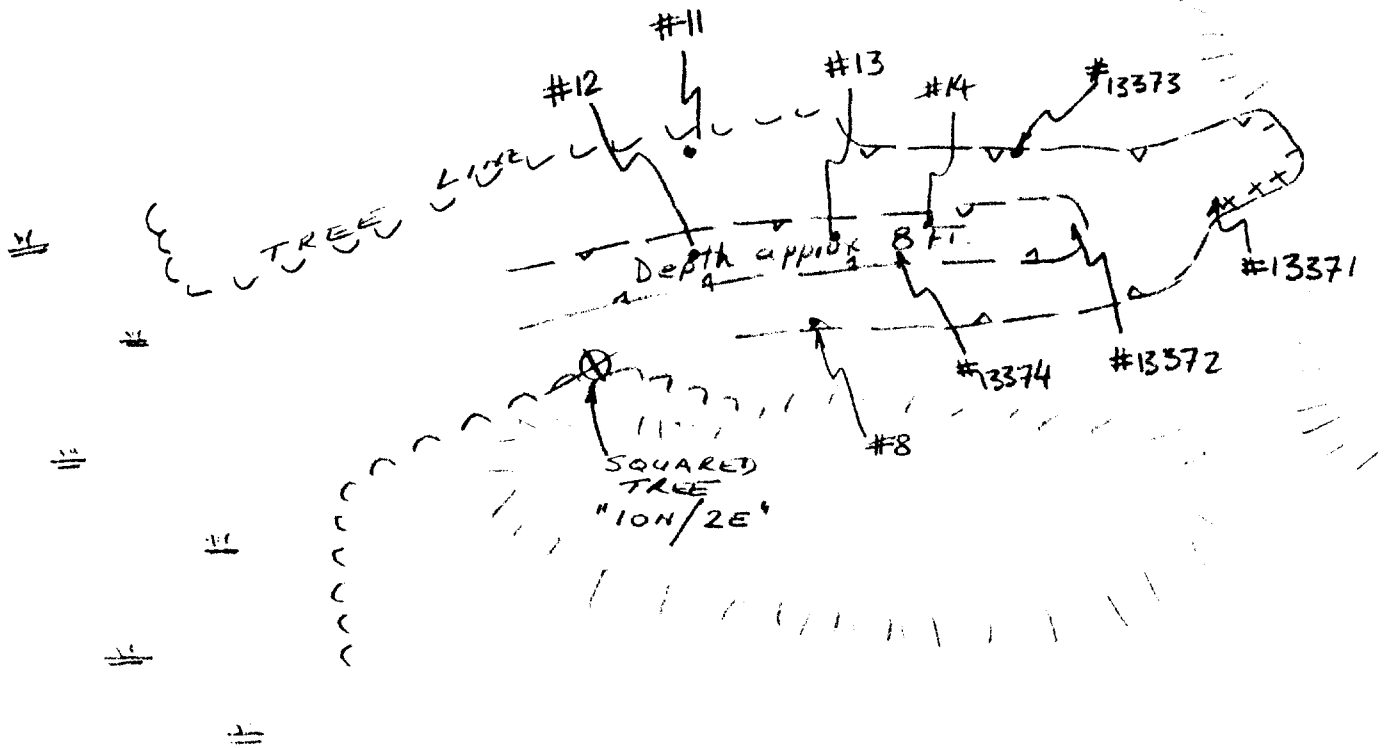 #11
#12
#13
#14
#13373
TREE LINE
Depth approx 8 FT.
#13371
#13374
#13372
#8
SQUARED
TREE
"10N/2E"